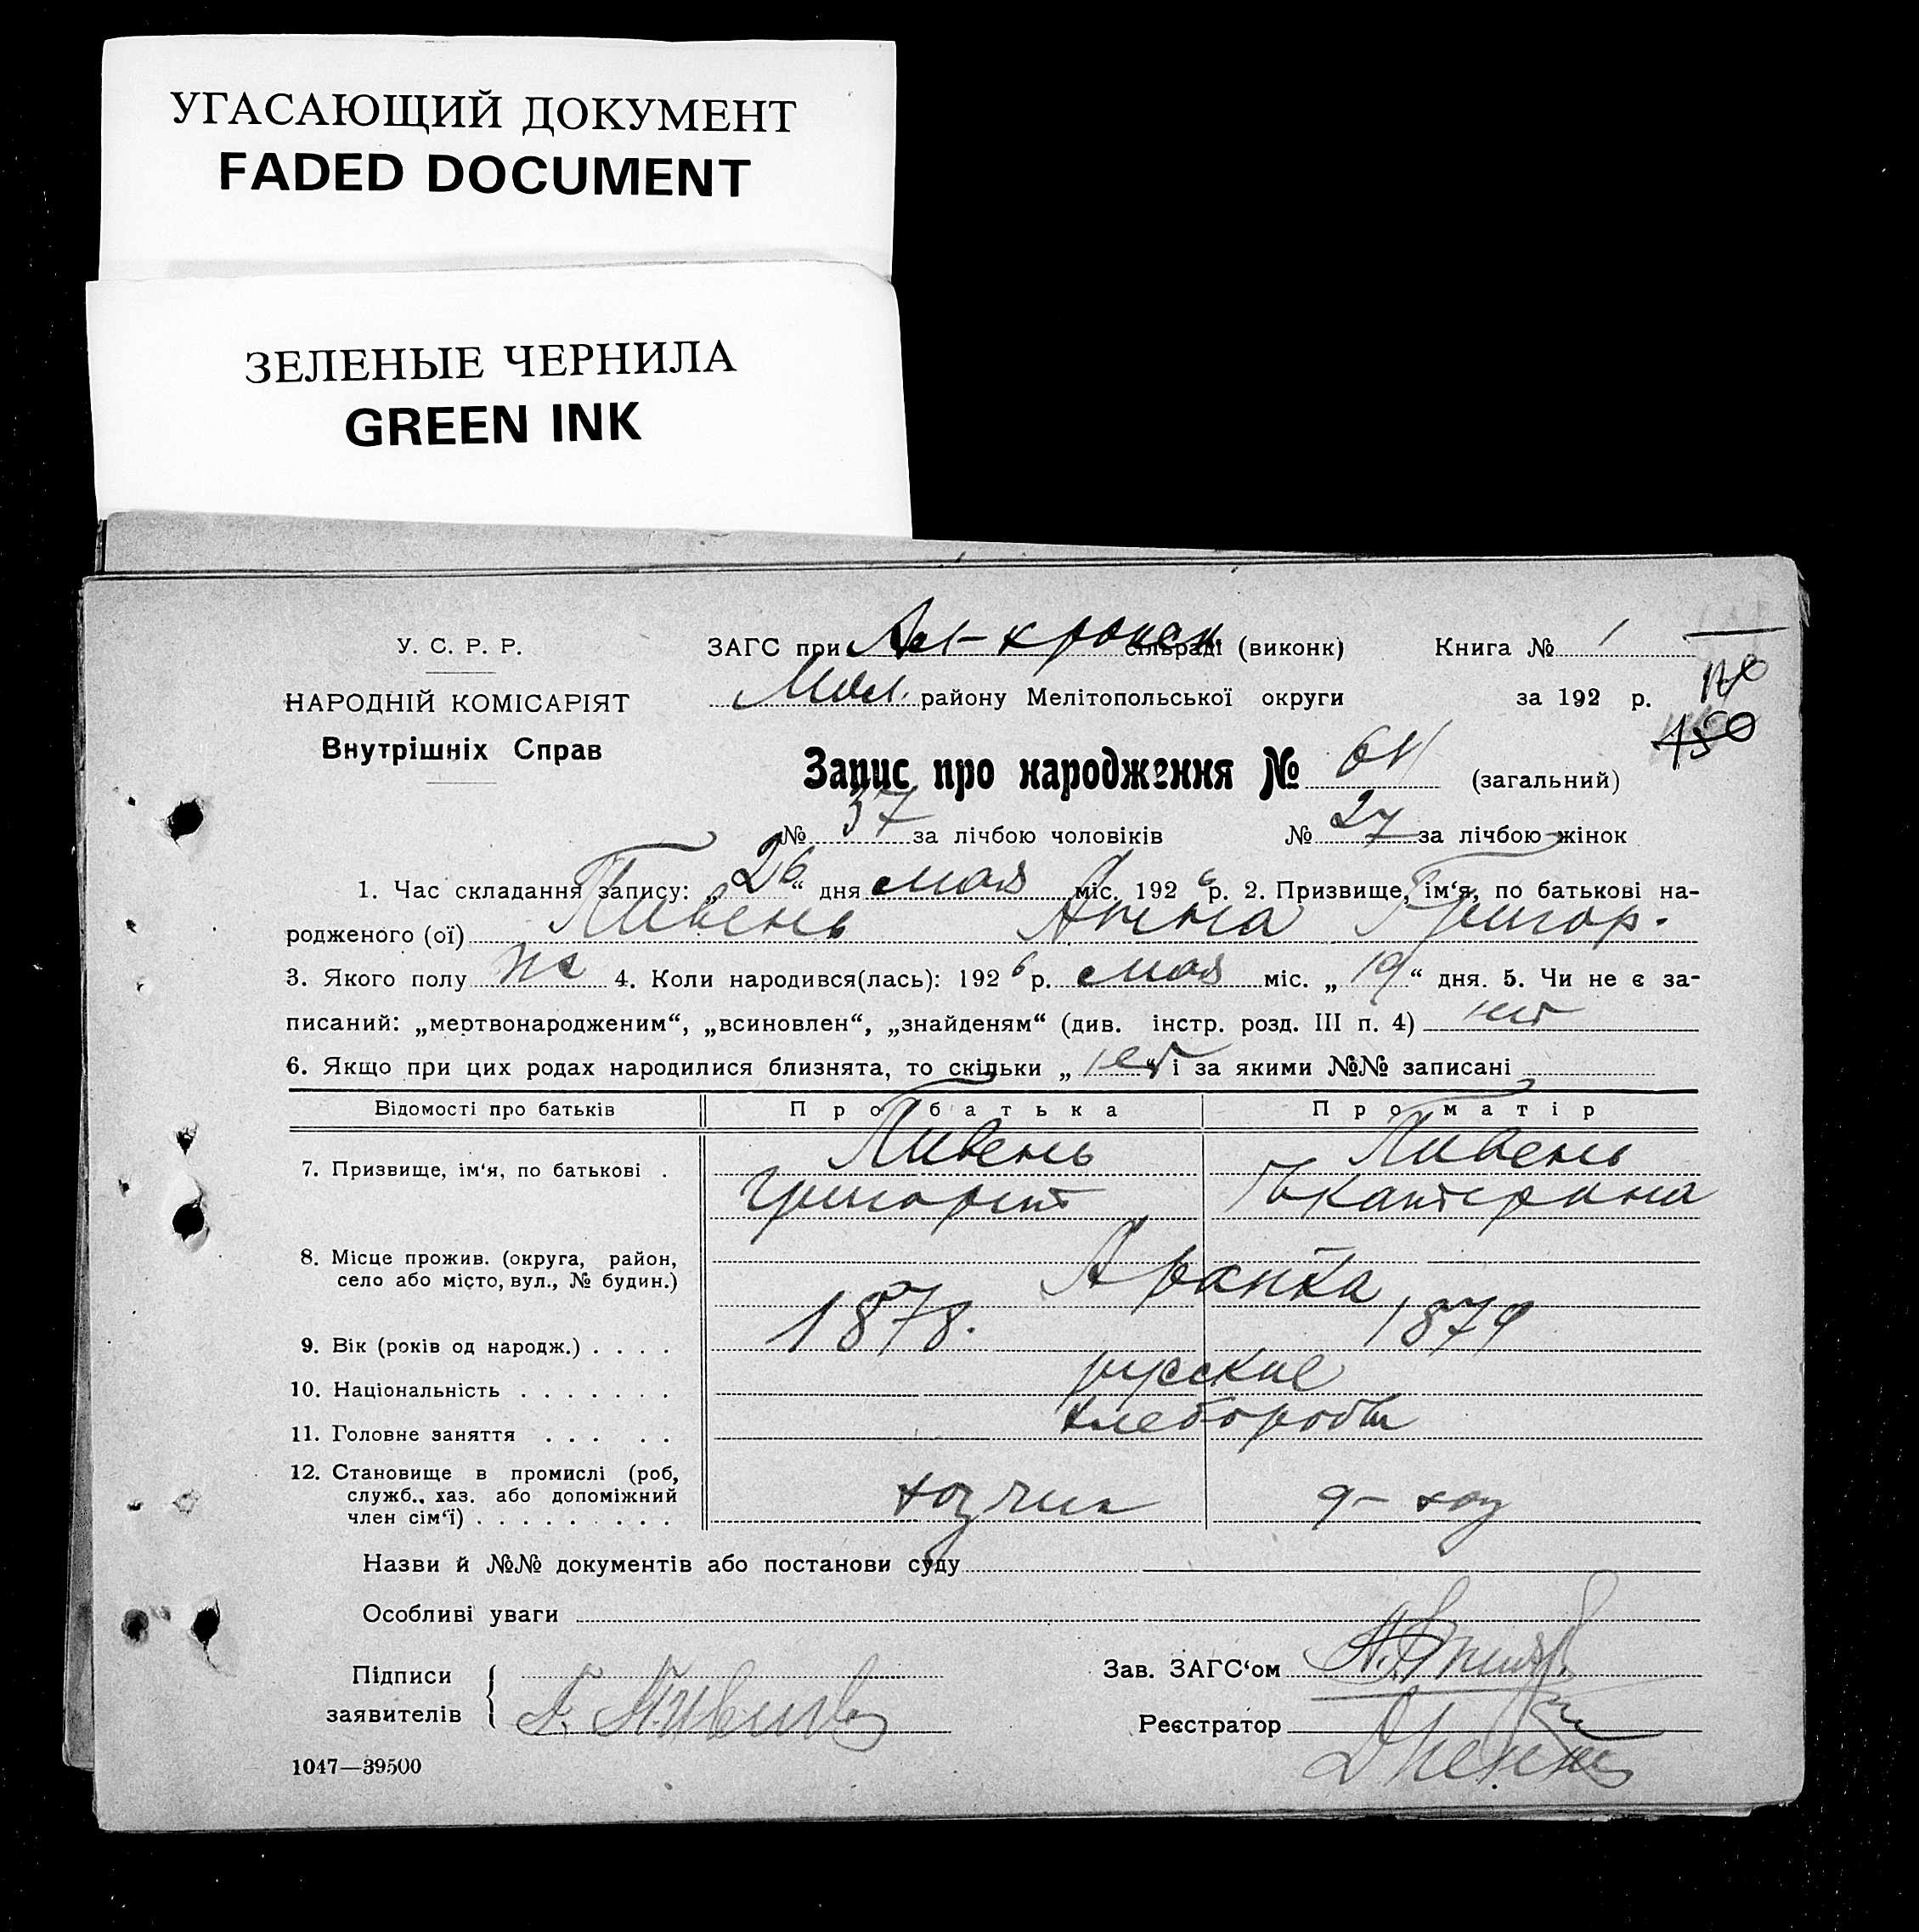 УГАСАЮЩИЙ ДОКУМЕНТ
FADED DOCUMENT
ЗЕЛЕНЫЕ ЧЕРНИЛА
GREEN INK
У. С. Р. Р.
НАРОДНІЙ КОМІСАРІЯТ
Внутрішніх Справ
ЗАГС при сільраді (виконк) Книга № 1
Мел. району Мелітопольської округи за 192 р.
150
Запис про народження № 64 (загальний)
№ 37 за лічбою чоловіків № 27 за лічбою жінок
1. Час складання запису: „26“ дня мая міс. 1926 р. 2. Призвище, ім‘я, по батькові на-
родженого (ої) Пивень Анна Григор.
3. Якого полу ж 4. Коли народився(лась): 1926 р. мая міс. „19“ дня. 5. Чи не є за-
писаний: „мертвонародженим“, „всиновлен“, „знайденям“ (див. інстр. розд. III п. 4) нет
6. Якщо при цих родах народилися близнята, то скільки „нет“ і за якими №№ записані
Відомості про батьків Про батька Про матір
7. Призвище, ім‘я, по батькові . Пивень Пивень
Григорий Екатерина
8. Місце прожив. (округа, район,
село або місто, вул., № будин.)
9. Вік (років од народж.) . . . . 1878. 1879
10. Національність . . . . . . . русские
11. Головне заняття . . . . . хлебороды
12. Становище в промислі (роб,
служб., хаз. або допоміжний
член сім‘ї) . . . . . . . . .
Назви й №№ документів або постанови суду
Особливі уваги
Підписи
заявителів
Г. Пивень
Зав. ЗАГС‘ом
Реєстратор
1047—39500